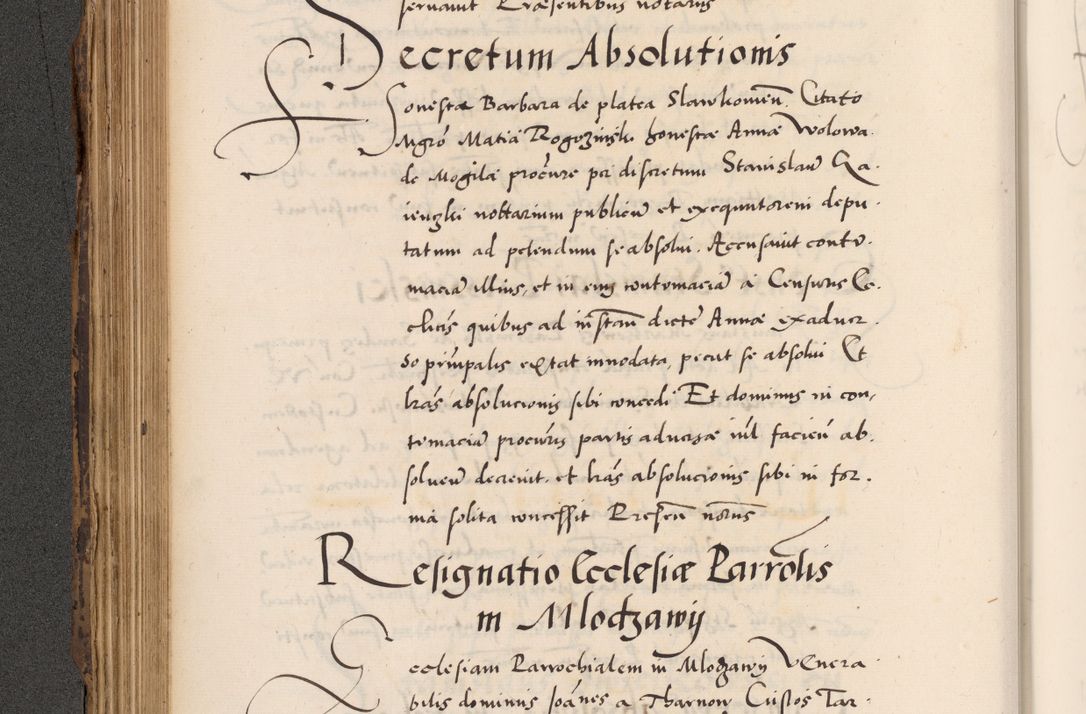 servavit Præsentibus notariis
Decretum Absolutionis
Honestæ Barbara de platea Slawkovien̄. Citato
Mgrō Matia Rogozinski honestæ Annæ Wolowa.
de Mogila procūre per discretum Stanislaū Ga.
ienzki nottarium publicū et exequutorem depu.
tatum ad petendum se absolvi. Accusavit contu.
maciā illius, et in eius contumaciā a Censuris Ec.
clicis quibus ad instan̄ dictæ Annæ ex aduer.
so principalis extat innodata, petiit se absolvi Et
lras absolucionis sibi concedi Et dominus in con,
tumaciā procuris partis aduersæ iul facieū ab.
solvend̄ decrevit. et lras absolucionis sibi in for.
ma solita concessit Presen̄ notus
Resignatio Ecclesiæ Parrolis
in Mlodzawij
Ecclesiam Parrochialem in Mlodzawij Venera.
bilis dominus Joānes a Tharnow Custos Tar.